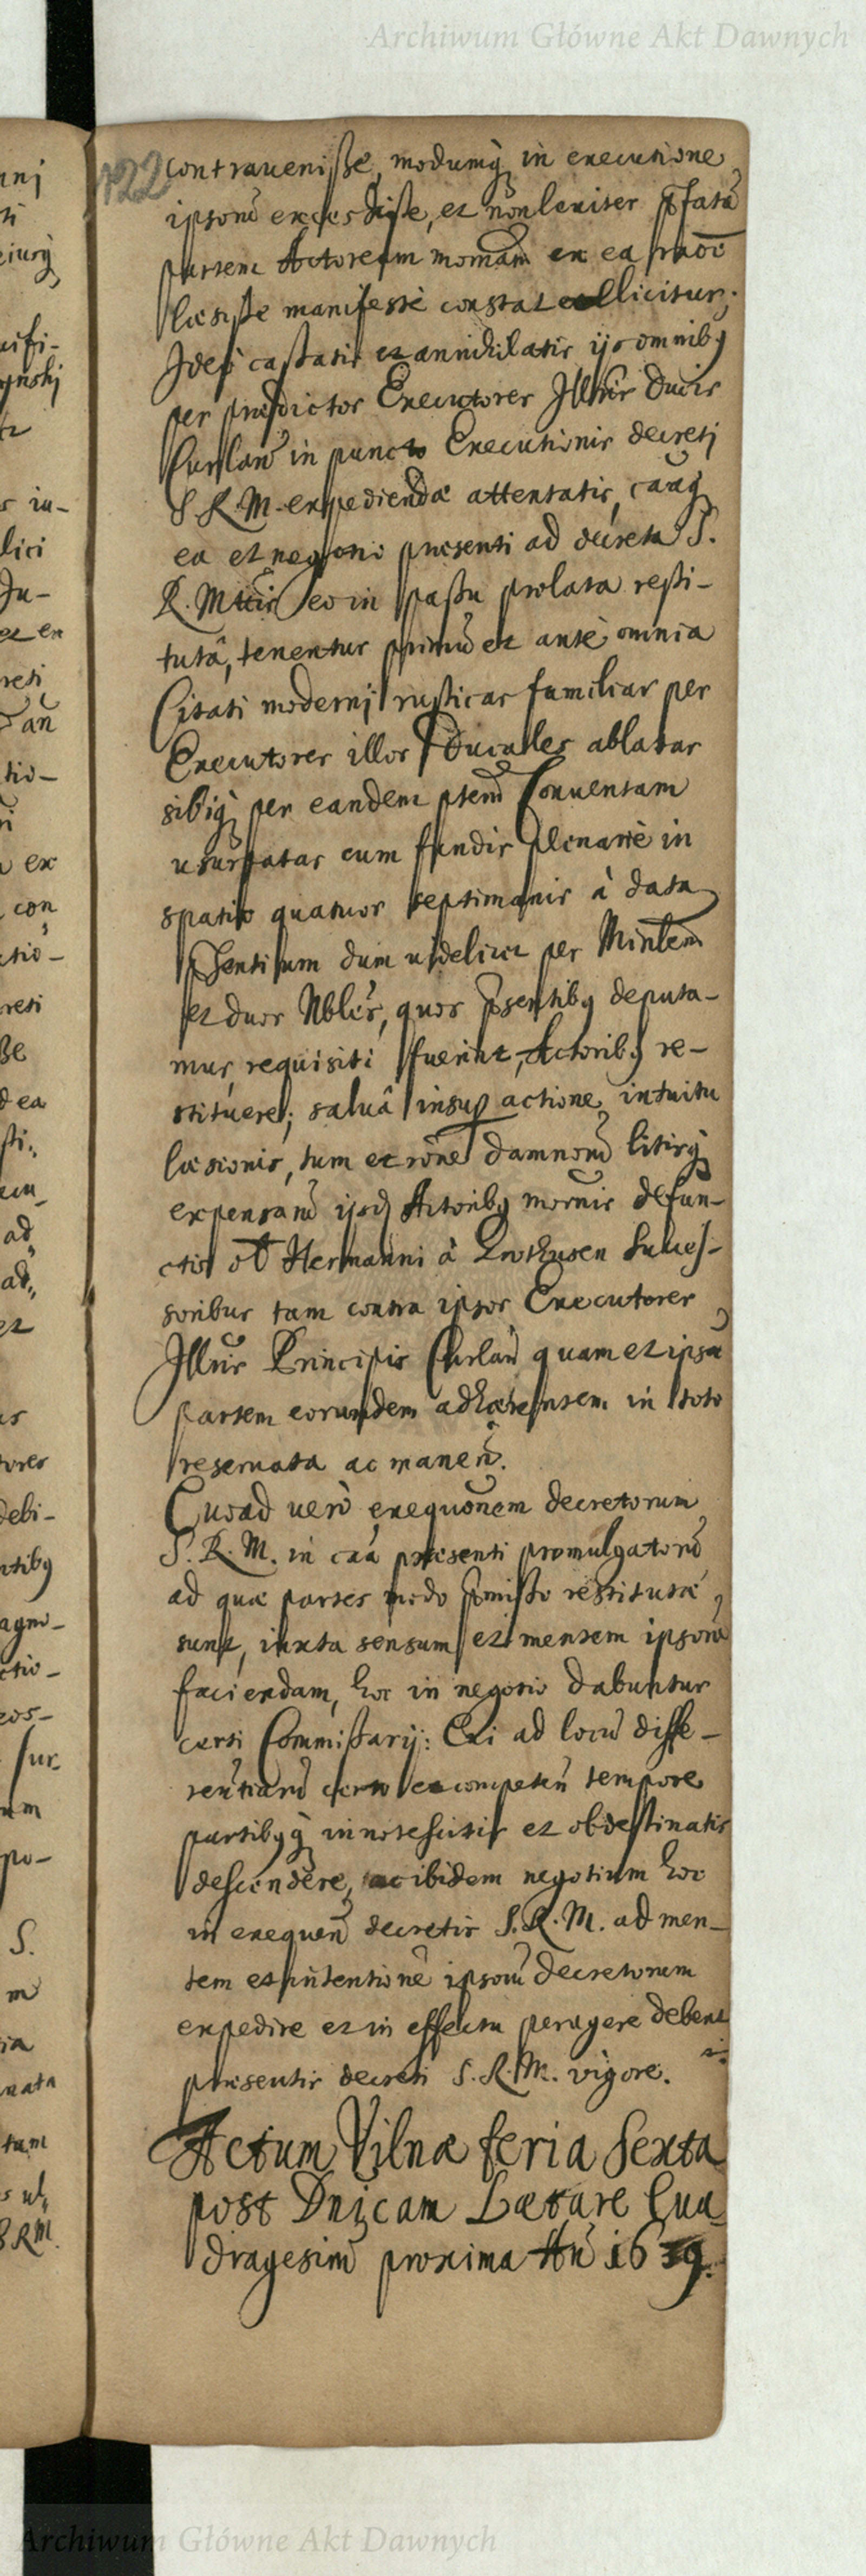 Archiwum Główne Akt Dawnych
122
contravenisse, modumq́ in executione
ipsorũ excessisse, et non leviter p̃fatã
partem Actoream mornãm ex ea raõe
læsisse manifestè constat collicitur;
Ideò cassatis et annihilatis ijs omnibꝰ
per prædictos Executores Illr̃is Ducis
Curlañ in puncto Executionis decreti
S R M. expediendæ attentatis, cãaq́
ea et negotio præsenti ad decreta S.
R. Mttis eo in passu prolata resti-
tutâ, tenentur primũ et antè omnia
Citati moderni rusticas familias per
Executores illos Ducales ablatas
sibiq́ per eandem ptem Conventam
usurpatas cum fundis plenariè in
spatio quatuor septimanis à data
p̃sentium dum videlicet per Minlem
et duos Nbles, quos p̃sentibꝰ deputa-
mus, requisiti fuerint, Actoribꝰ re-
stituere; salvâ insuꝑ actione, intuitu
læsionis, tum et rõne damnorũ litisq́
expensarũ ijsd̃ Actoribꝰ mornis defun-
ctis oł Hermanni à Brothusen Succes-
soribus tam contra ipsos Executores
Illr̃is Principis Curlañ quam et ipsã
partem eorundem adhærentem in toto
reservata ac maneñ.
Quoad verò exequõnem decretorum
S. R. M. in cãa præsenti promulgatorũ
ad quæ partes modo p̃misso restitutæ
sunt, iuxta sensum et mentem ipsorũ
faciendam, hoc in negotio dabuntur
certi Commissarij: Qui ad locũ diffe-
rentiarũ certo et competeñ tempore
partibꝰq́ innotescitis et obdestinatis
descendere, ac ibidem negotium hoc
in exequeñ decretis S. R. M. ad men-
tem et intentionẽ ipsorũ decretorum
expedire et in effectu peragere debent
præsentis decreti S. R. M. vigore.
Actum Vilnæ feria Sexta
post Dnĩcam Lætare Qua-
dragesim̃ proxima Añ 1639.
Archiwum Główne Akt Dawnych